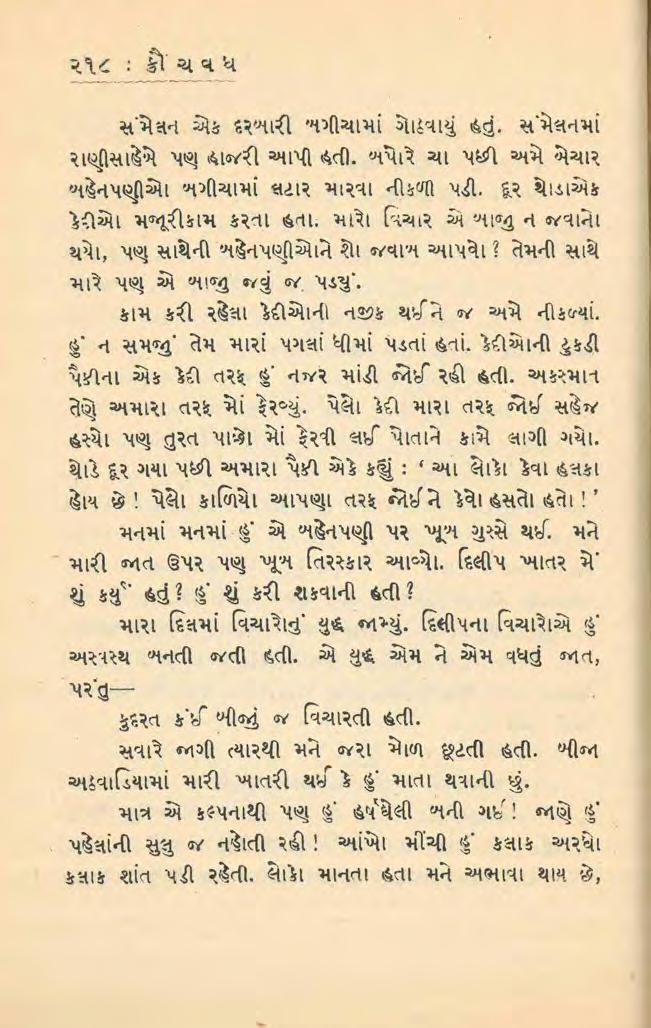 ૨૧૮ : ક્રૌંચવધ
સંમેલન એક દરબારી બગીચામાં ગોઠવાયું હતું. સંમેલનમાં
રાણીસાહેબે પણ હાજરી આપી હતી. બપોરે ચા પછી અમે બેચાર
બહેનપણીઓ બગીચામાં લટાર મારવા નીકળી પડી. દૂર થોડાએક
કેદીઓ મજૂરીકામ કરતા હતા. મારો વિચાર એ બાજુ ન જવાનો
થયો, પણ સાથેની બહેનપણીઓને શો જવાબ આપવો? તેમની સાથે
મારે પણ એ બાજુ જવું જ પડ્યું.
કામ કરી રહેલા કેદીઓની નજીક થઈને જ અમે નીકળ્યાં.
હું ન સમજું તેમ મારાં પગલાં ધીમાં પડતાં હતાં. કેદીઓની ટુકડી
પૈકીના એક કેદી તરફ હું નજર માંડી જોઈ રહી હતી. અકસ્માત
તેણે અમારા તરફ મોં ફેરવ્યું. પેલો કેદી મારા તરફ જોઈ સહેજ
હસ્યો પણ તુરત પાછો મોં ફેરવી લઈ પોતાને કામે લાગી ગયો.
થોડે દૂર ગયા પછી અમારા પૈકી એકે કહ્યું : ‘ આ લોકો કેવા હલકા
હોય છે! પેલો કાળિયો આપણા તરફ જોઈને કેવો હસતો હતો!’
મનમાં મનમાં હું એ બહેનપણી પર ખૂબ ગુસ્સે થઈ. મને
મારી જાત ઉપર પણ ખૂબ તિરસ્કાર આવ્યો. દિલીપ ખાતર મેં
શું કર્યું હતું? હું શું કરી શકવાની હતી?
મારા દિલમાં વિચારોનું યુદ્ધ જામ્યું. દિલીપના વિચારોએ હું
અસ્વસ્થ બનતી જતી હતી. એ યુદ્ધ એમ ને એમ વધતું જાત,
પરંતુ—
કુદરત કંઈ બીજું જ વિચારતી હતી.
સવારે જાગી ત્યારથી મને જરા મોળ છૂટતી હતી. બીજા
અઠવાડિયામાં મારી ખાતરી થઈ કે હું માતા થવાની છું.
માત્ર એ કલ્પનાથી પણ હું હર્ષઘેલી બની ગઈ! જાણે હું
પહેલાંની સુલુ જ નહોતી રહી! આંખો મીંચી હું કલાક અરધો
કલાક શાંત પડી રહેતી. લોકો માનતા હતા મને અભાવા થાય છે,